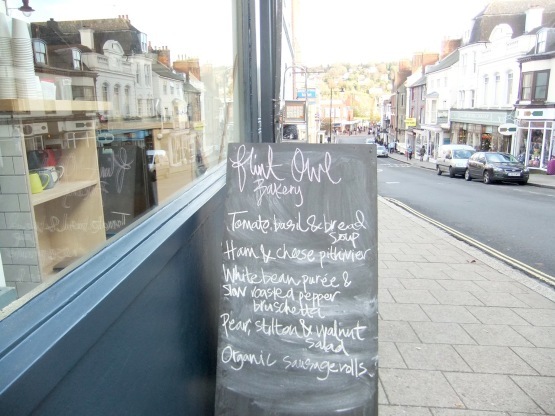 flint owl
Bakery
Tomato, basil & bread
soup
Ham & cheese pithivier
White bean purée &
slow roasted pepper
bruschetta
Pear, stilton & walnut
salad
Organic sausage rolls